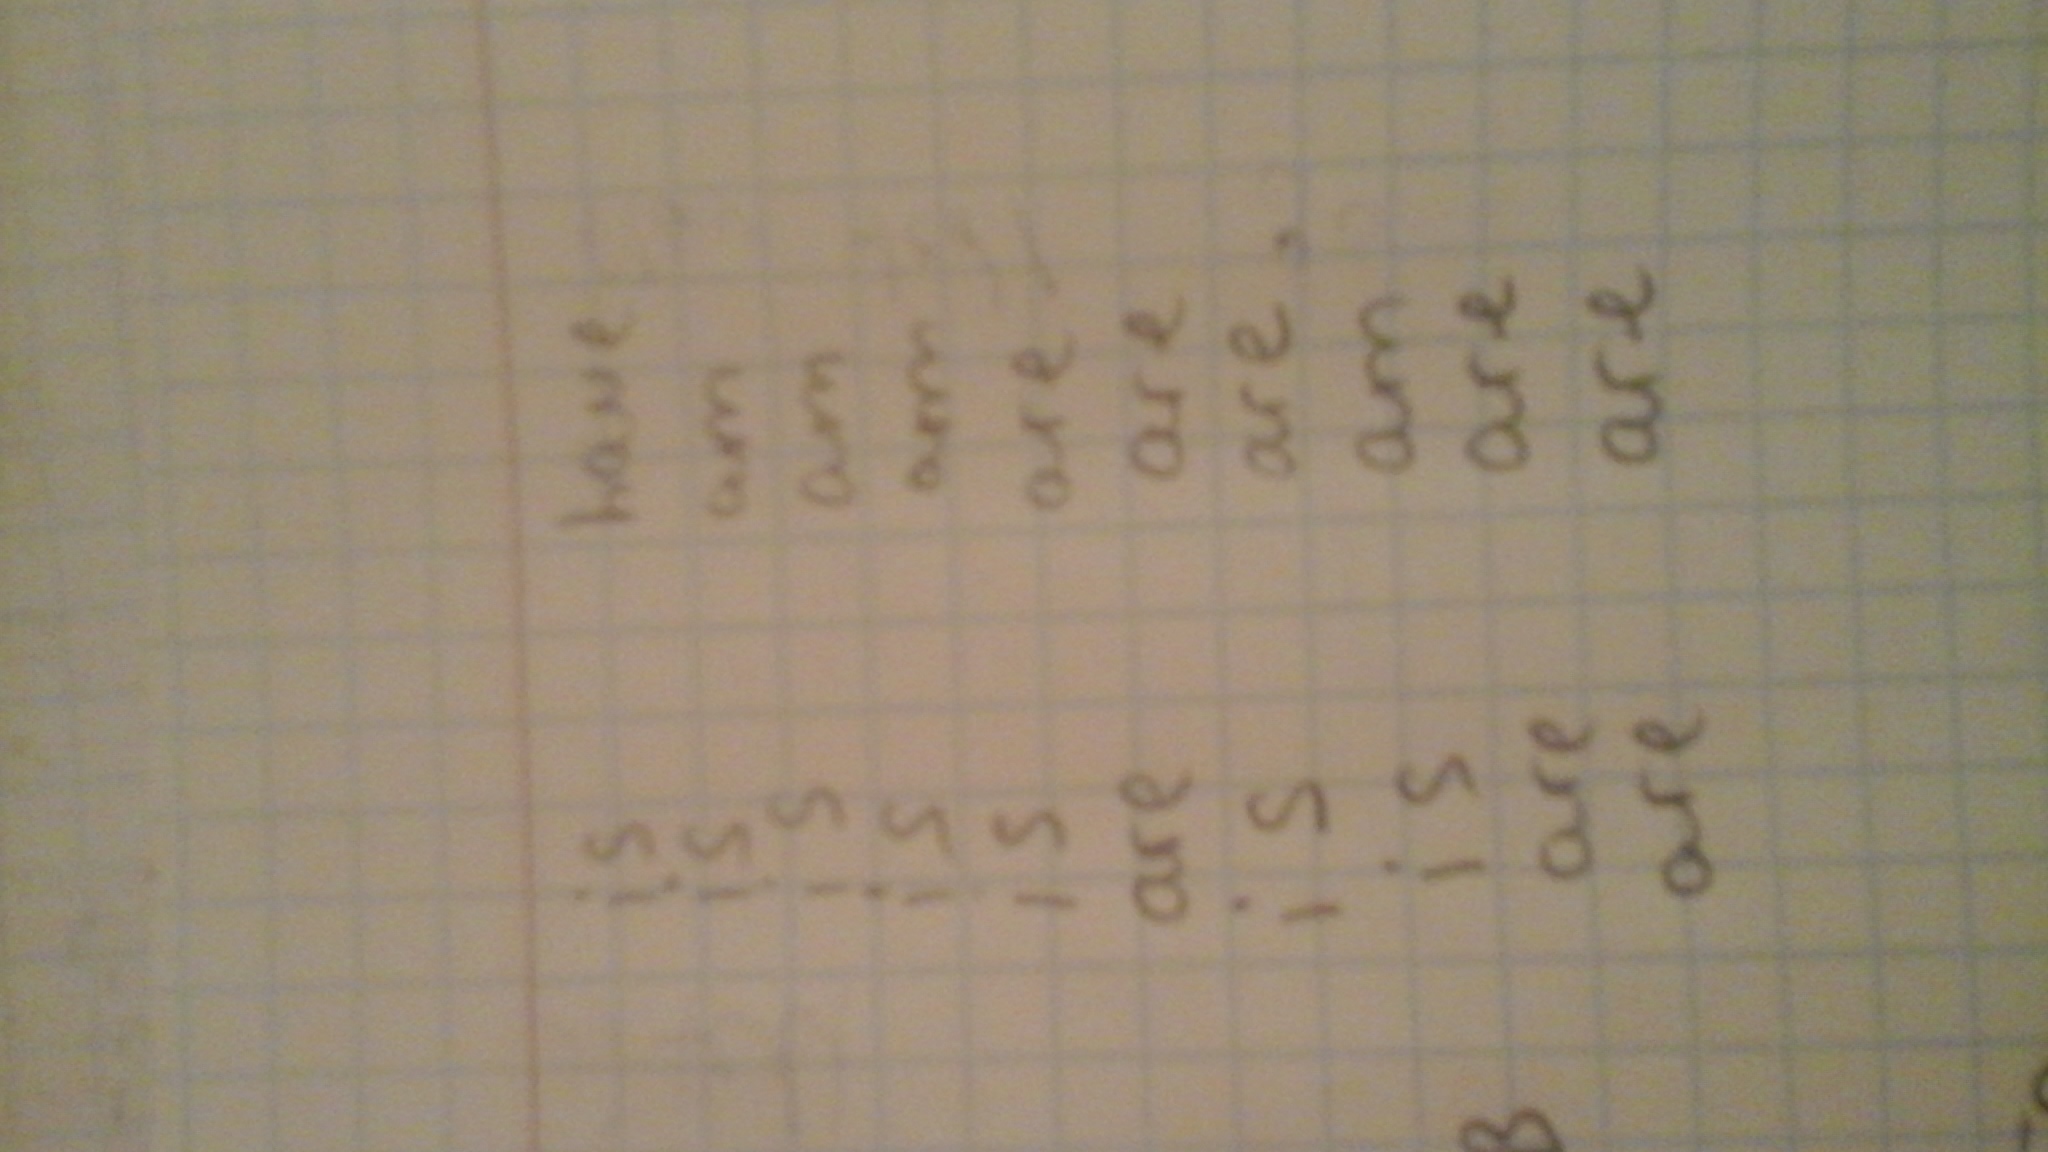 is have
is am
is am
is am
is are
are are
is are
B is am
are are
are are